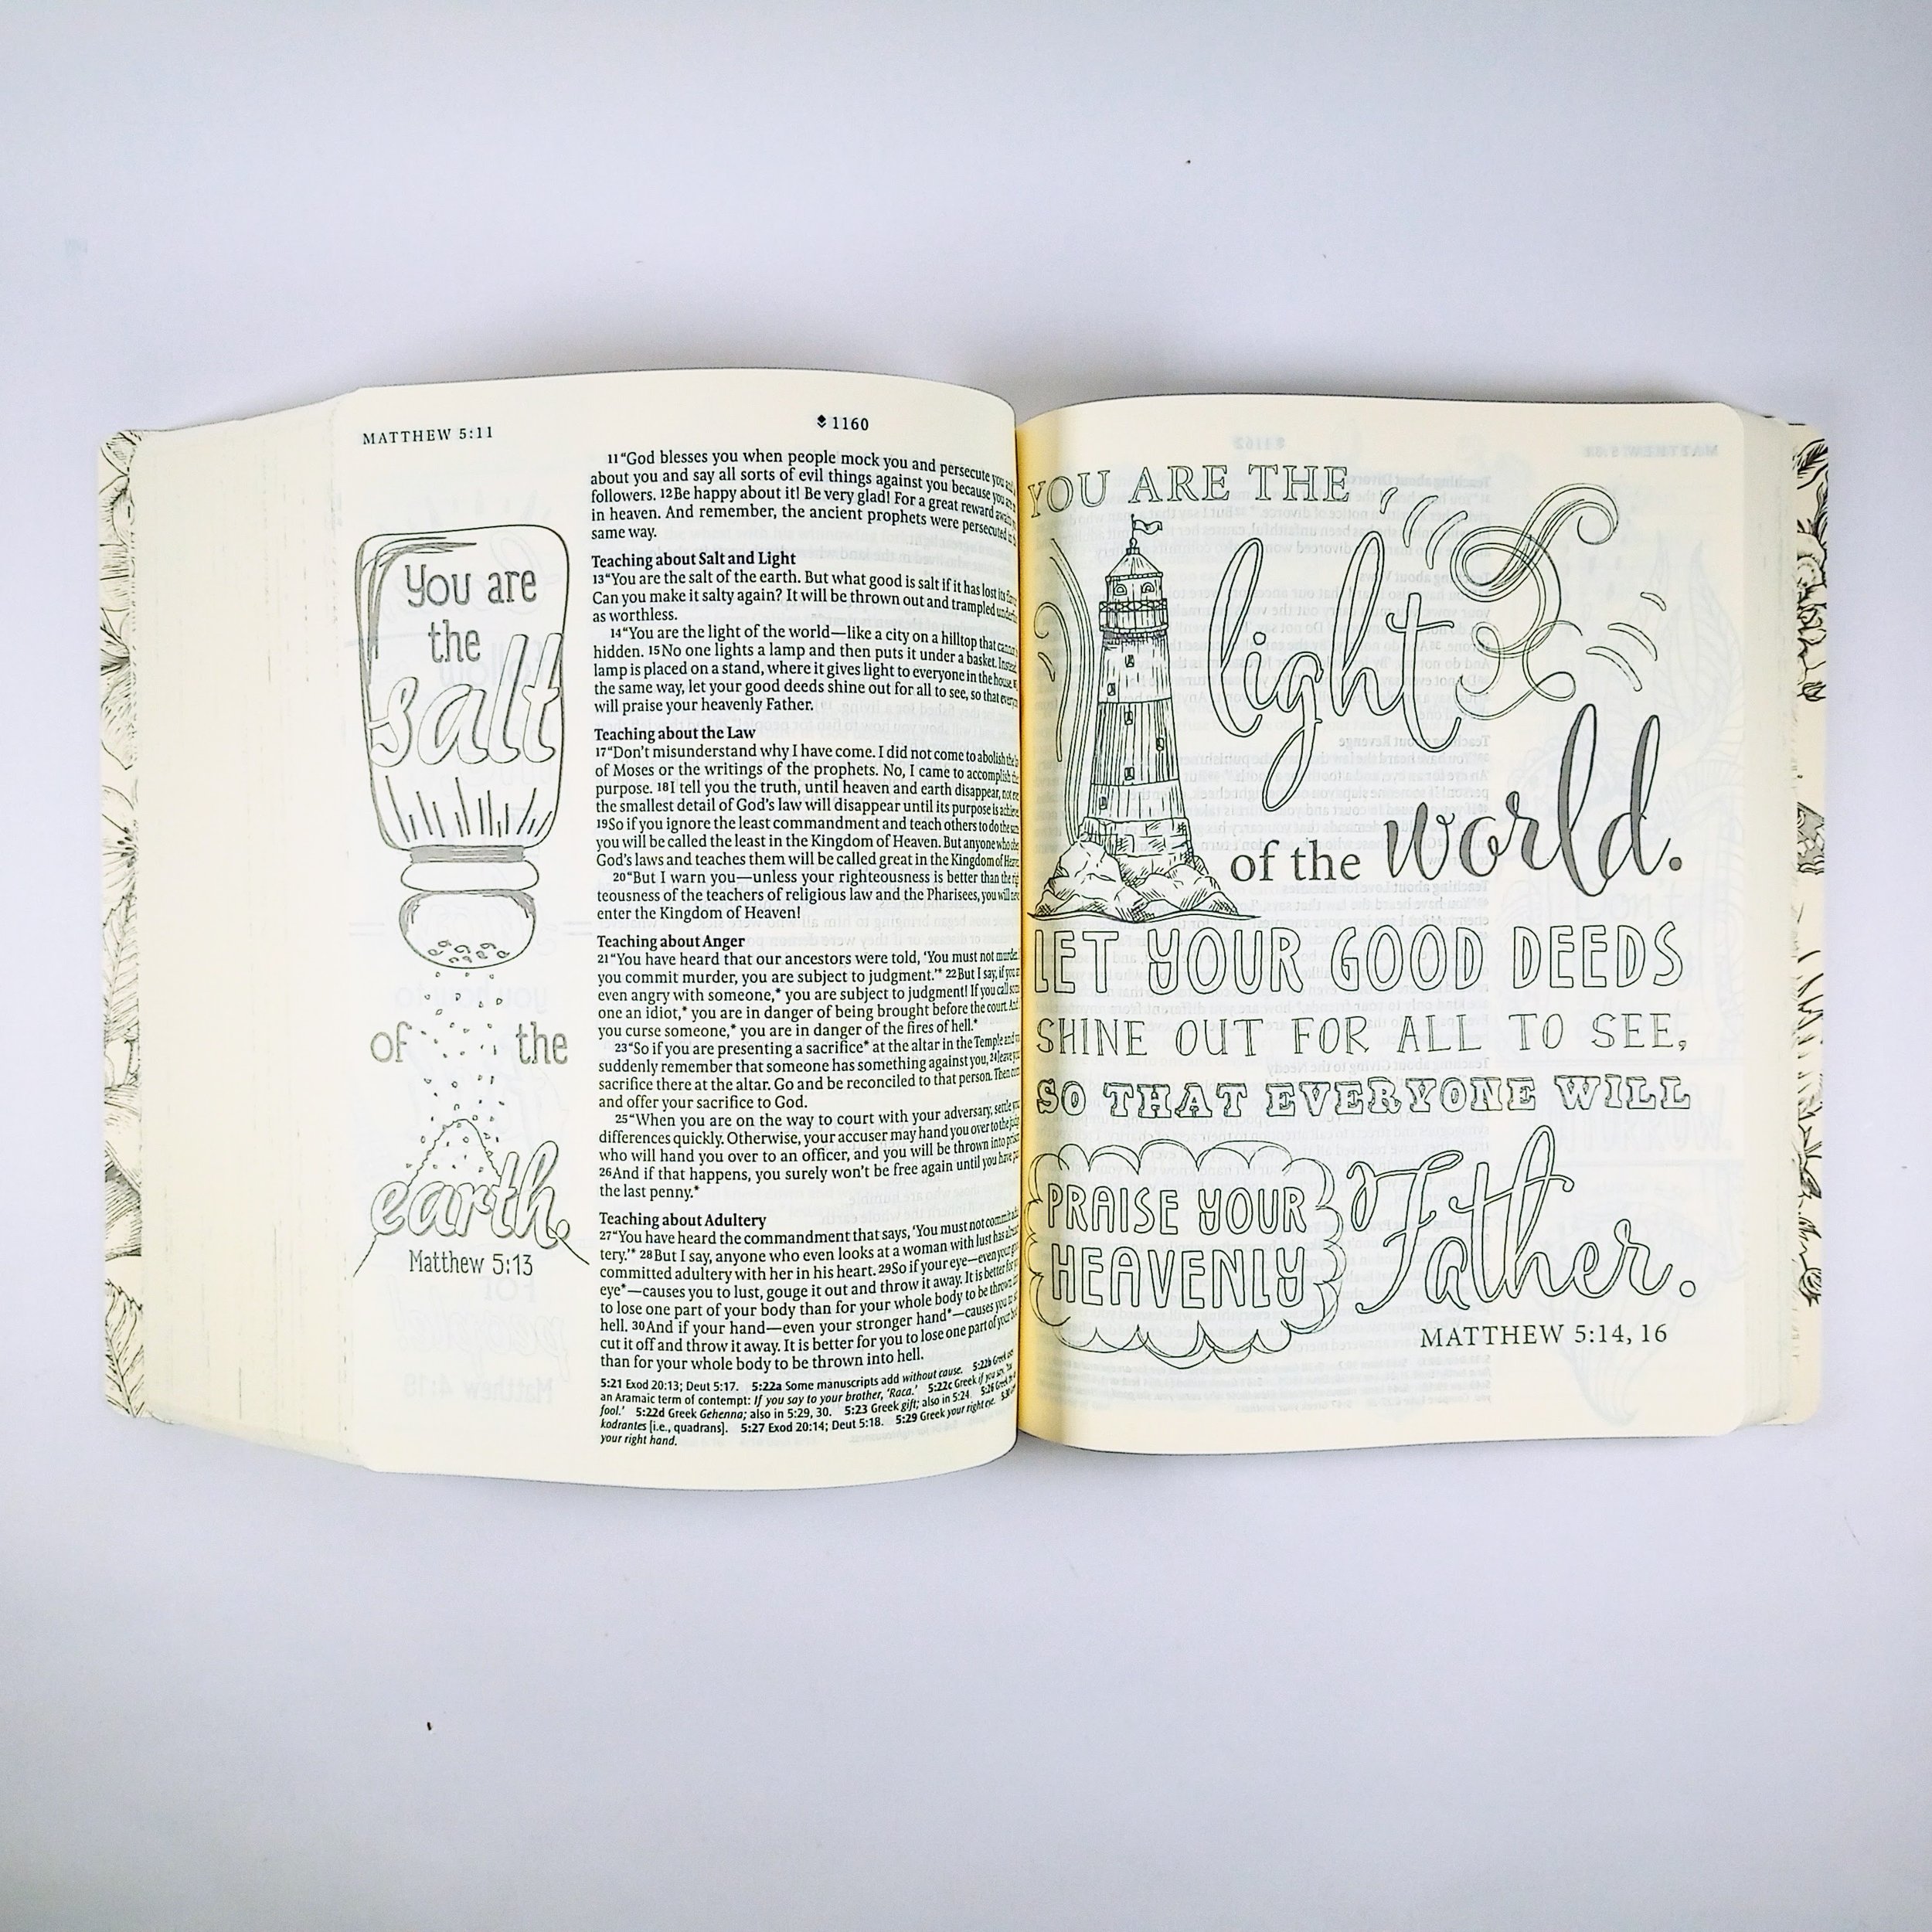 MATTHEW 5:11
1160
You are
the
salt
of the
earth.
Matthew 5:13
11“God blesses you when people mock you and persecute you
about you and say all sorts of evil things against you because you
followers. 12Be happy about it! Be very glad! For a great reward
in heaven. And remember, the ancient prophets were persecuted
same way.
Teaching about Salt and Light
13“You are the salt of the earth. But what good is salt if it has lost its
Can you make it salty again? It will be thrown out and trampled
as worthless.
14“You are the light of the world—like a city on a hilltop that
hidden. 15No one lights a lamp and then puts it under a basket.
lamp is placed on a stand, where it gives light to everyone in the house.
the same way, let your good deeds shine out for all to see, so that
will praise your heavenly Father.
Teaching about the Law
17“Don’t misunderstand why I have come. I did not come to abolish
of Moses or the writings of the prophets. No, I came to accomplish
purpose. 18I tell you the truth, until heaven and earth disappear, not
the smallest detail of God’s law will disappear until its purpose is
19So if you ignore the least commandment and teach others to do the
you will be called the least in the Kingdom of Heaven. But anyone who
God’s laws and teaches them will be called great in the Kingdom of
20“But I warn you—unless your righteousness is better than the
teousness of the teachers of religious law and the Pharisees, you will
enter the Kingdom of Heaven!
Teaching about Anger
21“You have heard that our ancestors were told, ‘You must not murder.
you commit murder, you are subject to judgment.’* 22But I say, if you
even angry with someone,* you are subject to judgment! If you call
one an idiot,* you are in danger of being brought before the court.
you curse someone,* you are in danger of the fires of hell.*
23“So if you are presenting a sacrifice* at the altar in the Temple
suddenly remember that someone has something against you, 24leave
sacrifice there at the altar. Go and be reconciled to that person. Then
and offer your sacrifice to God.
25“When you are on the way to court with your adversary, settle
differences quickly. Otherwise, your accuser may hand you over to the
who will hand you over to an officer, and you will be thrown into
26And if that happens, you surely won’t be free again until you have
the last penny.*
Teaching about Adultery
27“You have heard the commandment that says, ‘You must not commit
tery.’* 28But I say, anyone who even looks at a woman with lust has
committed adultery with her in his heart. 29So if your eye—even your
eye*—causes you to lust, gouge it out and throw it away. It is better for
to lose one part of your body than for your whole body to be thrown
hell. 30And if your hand—even your stronger hand*—causes you to
cut it off and throw it away. It is better for you to lose one part of your
than for your whole body to be thrown into hell.
5:21 Exod 20:13; Deut 5:17. 5:22a Some manuscripts add without cause. 5:22b Greek
an Aramaic term of contempt: If you say to your brother, ‘Raca.’ 5:22c Greek if you say,
fool.’ 5:22d Greek Gehenna; also in 5:29, 30. 5:23 Greek gift; also in 5:24. 5:26 Greek
kodrantes [i.e., quadrans]. 5:27 Exod 20:14; Deut 5:18. 5:29 Greek your right eye. 5:30
your right hand.
YOU ARE THE
light
of the world.
LET YOUR GOOD DEEDS
SHINE OUT FOR ALL TO SEE,
SO THAT EVERYONE WILL
PRAISE YOUR
HEAVENLY
Father.
MATTHEW 5:14, 16